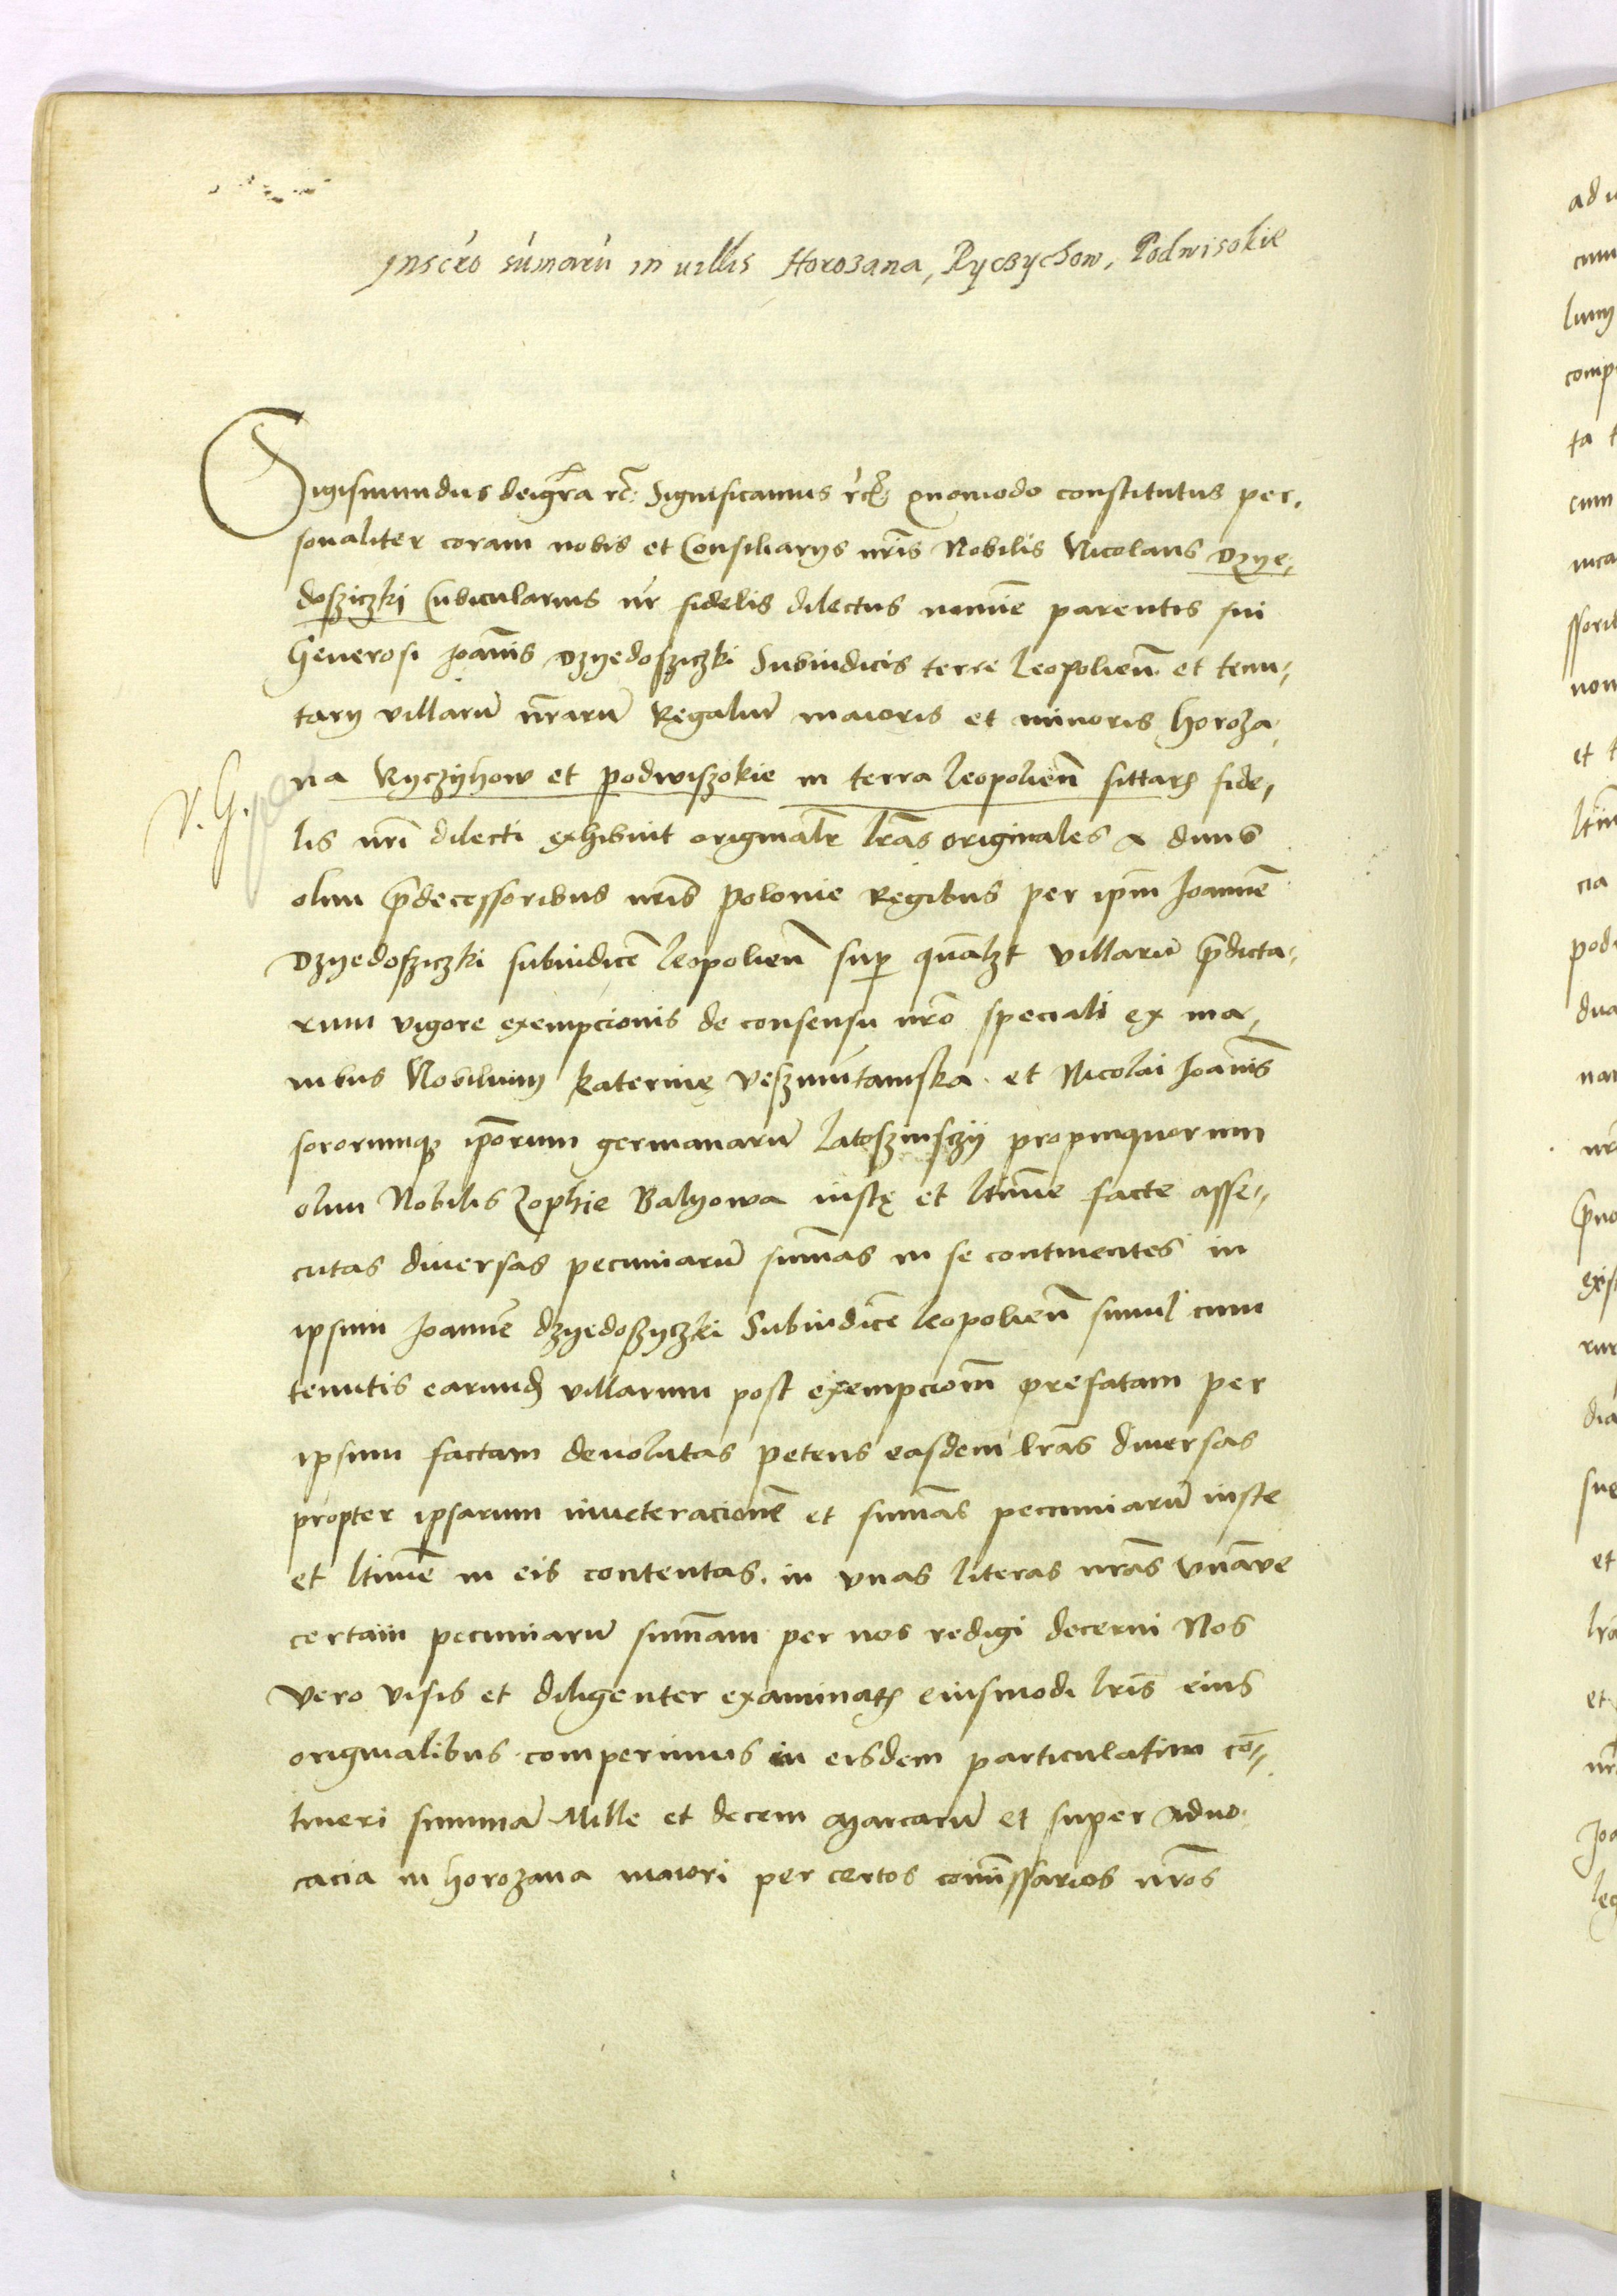 Inscro sūmarū in villis Horozana, Ryczychow, Podwisokie
Sigismundus deigra rc. Significamus rc. quomodo constitutus per,
sonaliter coram nobis et Consiliarys nris Nobilis Nicolaus Dzye,
dosziczki Cubicularius nr fidelis dilectus nomine parentis sui
Generosi Joannis Dzyedosziczki Subiudicis terre Leopolien et tenu,
tary villarū nrarū Regaliū maioris et minoris horoza,
na Ryczyhow et podwiszokie in terra leopolien sittarz fide,
V. G.
lis nri dilecti exhibuit originalr lras originales a diuis
olim pdecessoribus nris Polonie Regibus per ipm Joannē
Dzyedosziczki subiudicē leopolien sup quālzt villarū pdicta,
rum vigore exempcionis de consensu nro speciali ex ma,
nibus Nobilium katerinę et Nicolai Joānis
sororumqz iporum germanarū Latoszinsczij propinquorum
olim Nobilis Zophie Balyowa iustę et ltime facte asse,
cutas diuersas pecuniarū sumas in se continentes in
ipsum Joannē dzyedoszyczki Subiudicē leopolien simul cum
tenutis earundz villarum post exempcionm prefatam per
ipsum factam deuolutas petens easdem lras diuersas
propter ipsarum inueteracionē et sumas pecuniarū iuste
et ltime in eis contentas. in vnas literas nras vnāve
certam pecuniarū sumam per nos redigi decerni Nos
vero visis et diligenter examinatz eiusmodi lris eius
originalibus comperimus in eisdem particulatim cō,
tineri summā Mille et decem Marcarū et super aduo,
cacia in horozana maiori per certos comissarios nros